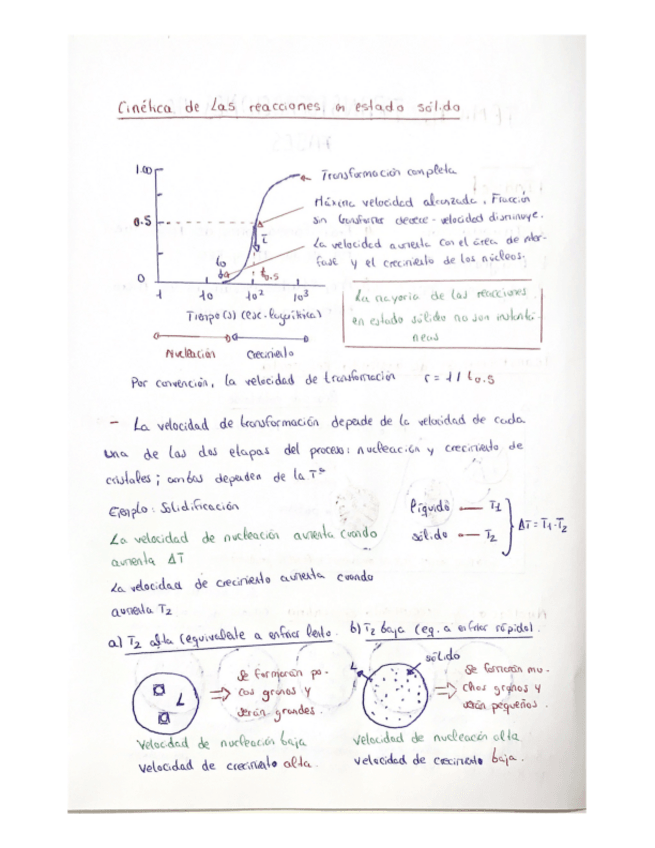 Cinética de las reacciones en estado sólido
1.00
Transformación completa
Máxima velocidad alcanzada. Fracción
0.5
sin transformar decrece - velocidad disminuye.
La velocidad aumenta con el área de inter-
fase y el crecimiento de los núcleos.
t0
t0.5
0
1 10 10² 10³
Tiempo (s) (esc. logarítmica)
La mayoría de las reacciones
en estado sólido no son instantá
neas
Nucleación Crecimiento
Por convención, la velocidad de transformación r = 1 / t0.5
- La velocidad de transformación depende de la velocidad de cada
una de las dos etapas del proceso: nucleación y crecimiento de
cristales; ambas dependen de la Tª
Ejemplo: Solidificación
líquido — T1
sólido — T2
ΔT = T1 - T2
La velocidad de nucleación aumenta cuando
aumenta ΔT
La velocidad de crecimiento aumenta cuando
aumenta T2
a) T2 alta (equivalente a enfriar lento.
b) T2 baja (eq. a enfriar rápido).
L
Se formarán po-
cos granos y
serán grandes.
sólido
L
Se formarán mu-
chos granos y
serán pequeños.
Velocidad de nucleación baja
Velocidad de crecimiento alta.
Velocidad de nucleación alta
Velocidad de crecimiento baja.